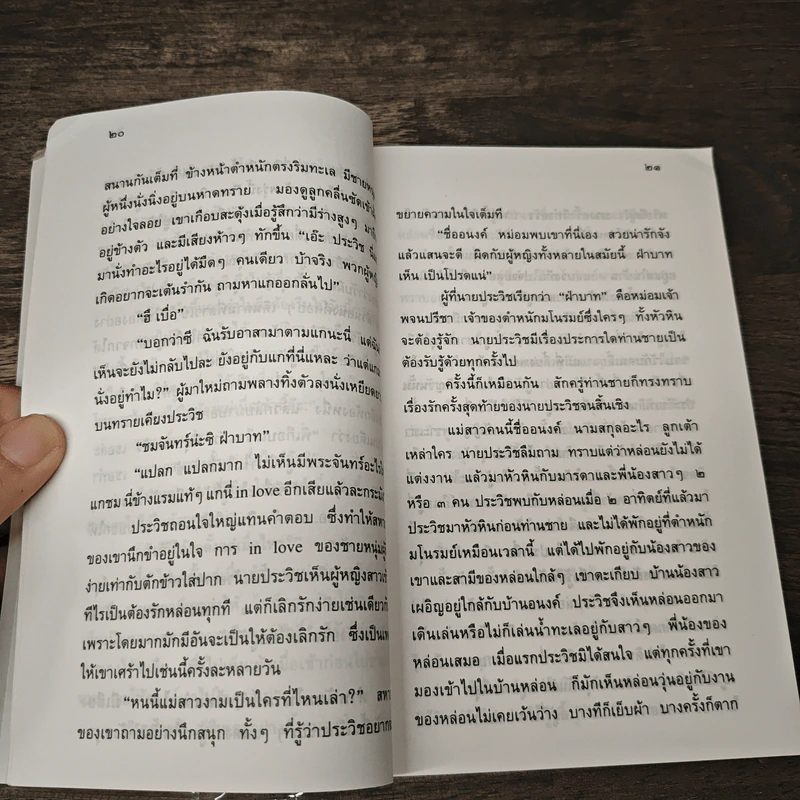 ๒๐
สนานกันเต็มที่ ข้างหน้าตำหนักตรงริมทะเล มีชายหนุ่ม
ผู้หนึ่งนั่งนิ่งอยู่บนหาดทราย มองดูลูกคลื่นซัดเข้า
อย่างใจลอย เขาเกือบสะดุ้งเมื่อรู้สึกว่ามีร่างสูงๆ
อยู่ข้างตัว และมีเสียงห้าวๆ ทักขึ้น “เฮ๊ะ ประวิช
มานั่งทำอะไรอยู่ได้มืดๆ คนเดียว บ้าจริง พวกผู้หญิง
เกิดอยากจะเต้นรำกัน ถามหาแกออกลั่นไป”
“ฮึ เบื่อ”
“บอกว่าซี ฉันรับอาสามาตามแกนะนี่
เห็นจะยังไม่กลับไปละ ยังอยู่กับแกที่นี่แหละ ว่าแต่แก
นั่งอยู่ทำไม?” ผู้มาใหม่ถามพลางทิ้งตัวลงนั่งเหยียดยาว
บนทรายเคียงประวิช
“ชมจันทร์น่ะซิ ฝ่าบาท”
“แปลก แปลกมาก ไม่เห็นมีพระจันทร์อะไร
แกชม นี่ข้างแรมแท้ๆ แกนี่ in love อีกเสียแล้วละกระมัง
ประวิชถอนใจใหญ่แทนคำตอบ ซึ่งทำให้สหาย
ของเขานึกขำอยู่ในใจ การ in love ของชายหนุ่มผู้
ง่ายเท่ากับตักข้าวใส่ปาก นายประวิชเห็นผู้หญิงสาว
ทีไรเป็นต้องรักหล่อนทุกที แต่ก็เลิกรักง่ายเช่นเดียวกัน
เพราะโดยมากมักมีอันจะเป็นให้ต้องเลิกรัก ซึ่งเป็น
ให้เขาเศร้าไปเช่นนี้ครั้งละหลายวัน
“หนนี้แม่สาวงามเป็นใครที่ไหนเล่า?” สหาย
ของเขาถามอย่างนึกสนุก ทั้งๆ ที่รู้ว่าประวิชอยาก
๒๑
ขยายความในใจเต็มที
“ชื่ออนงค์ หม่อมพบเขาที่นี่เอง สวยน่ารักจัง
แล้วแสนจะดี ผิดกับผู้หญิงทั้งหลายในสมัยนี้ ฝ่าบาท
เห็น เป็นโปรดแน่”
ผู้ที่นายประวิชเรียกว่า “ฝ่าบาท” คือหม่อมเจ้า
พจนปรีชา เจ้าของตำหนักมโนรมย์ซึ่งใครๆ ทั้งหัวหิน
จะต้องรู้จัก นายประวิชมีเรื่องประการใดท่านชายเป็น
ต้องรับรู้ด้วยทุกครั้งไป
ครั้งนี้ก็เหมือนกัน สักครู่ท่านชายก็ทรงทราบ
เรื่องรักครั้งสุดท้ายของนายประวิชจนสิ้นเชิง
แม่สาวคนนี้ชื่ออนงค์ นามสกุลอะไร ลูกเต้า
เหล่าใคร นายประวิชลืมถาม ทราบแต่ว่าหล่อนยังไม่ได้
แต่งงาน แล้วมาหัวหินกับมารดาและพี่น้องสาวๆ ๒
หรือ ๓ คน ประวิชพบกับหล่อนเมื่อ ๒ อาทิตย์ที่แล้วมา
ประวิชมาหัวหินก่อนท่านชาย และไม่ได้พักอยู่ที่ตำหนัก
มโนรมย์เหมือนเวลานี้ แต่ได้ไปพักอยู่กับน้องสาวของ
เขาและสามีของหล่อนใกล้ๆ เขาตะเกียบ บ้านน้องสาว
เผอิญอยู่ใกล้กับบ้านอนงค์ ประวิชจึงเห็นหล่อนออกมา
เดินเล่นหรือไม่ก็เล่นน้ำทะเลอยู่กับสาวๆ พี่น้องของ
หล่อนเสมอ เมื่อแรกประวิชมิได้สนใจ แต่ทุกครั้งที่เขา
มองเข้าไปในบ้านหล่อน ก็มักเห็นหล่อนวุ่นอยู่กับงาน
ของหล่อนไม่เคยเว้นว่าง บางทีก็เย็บผ้า บางครั้งก็ตาก